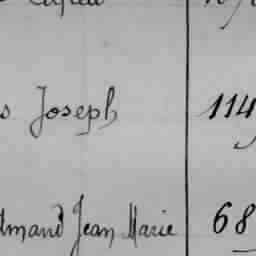 s Joseph 114
dmand Jean Marie 68